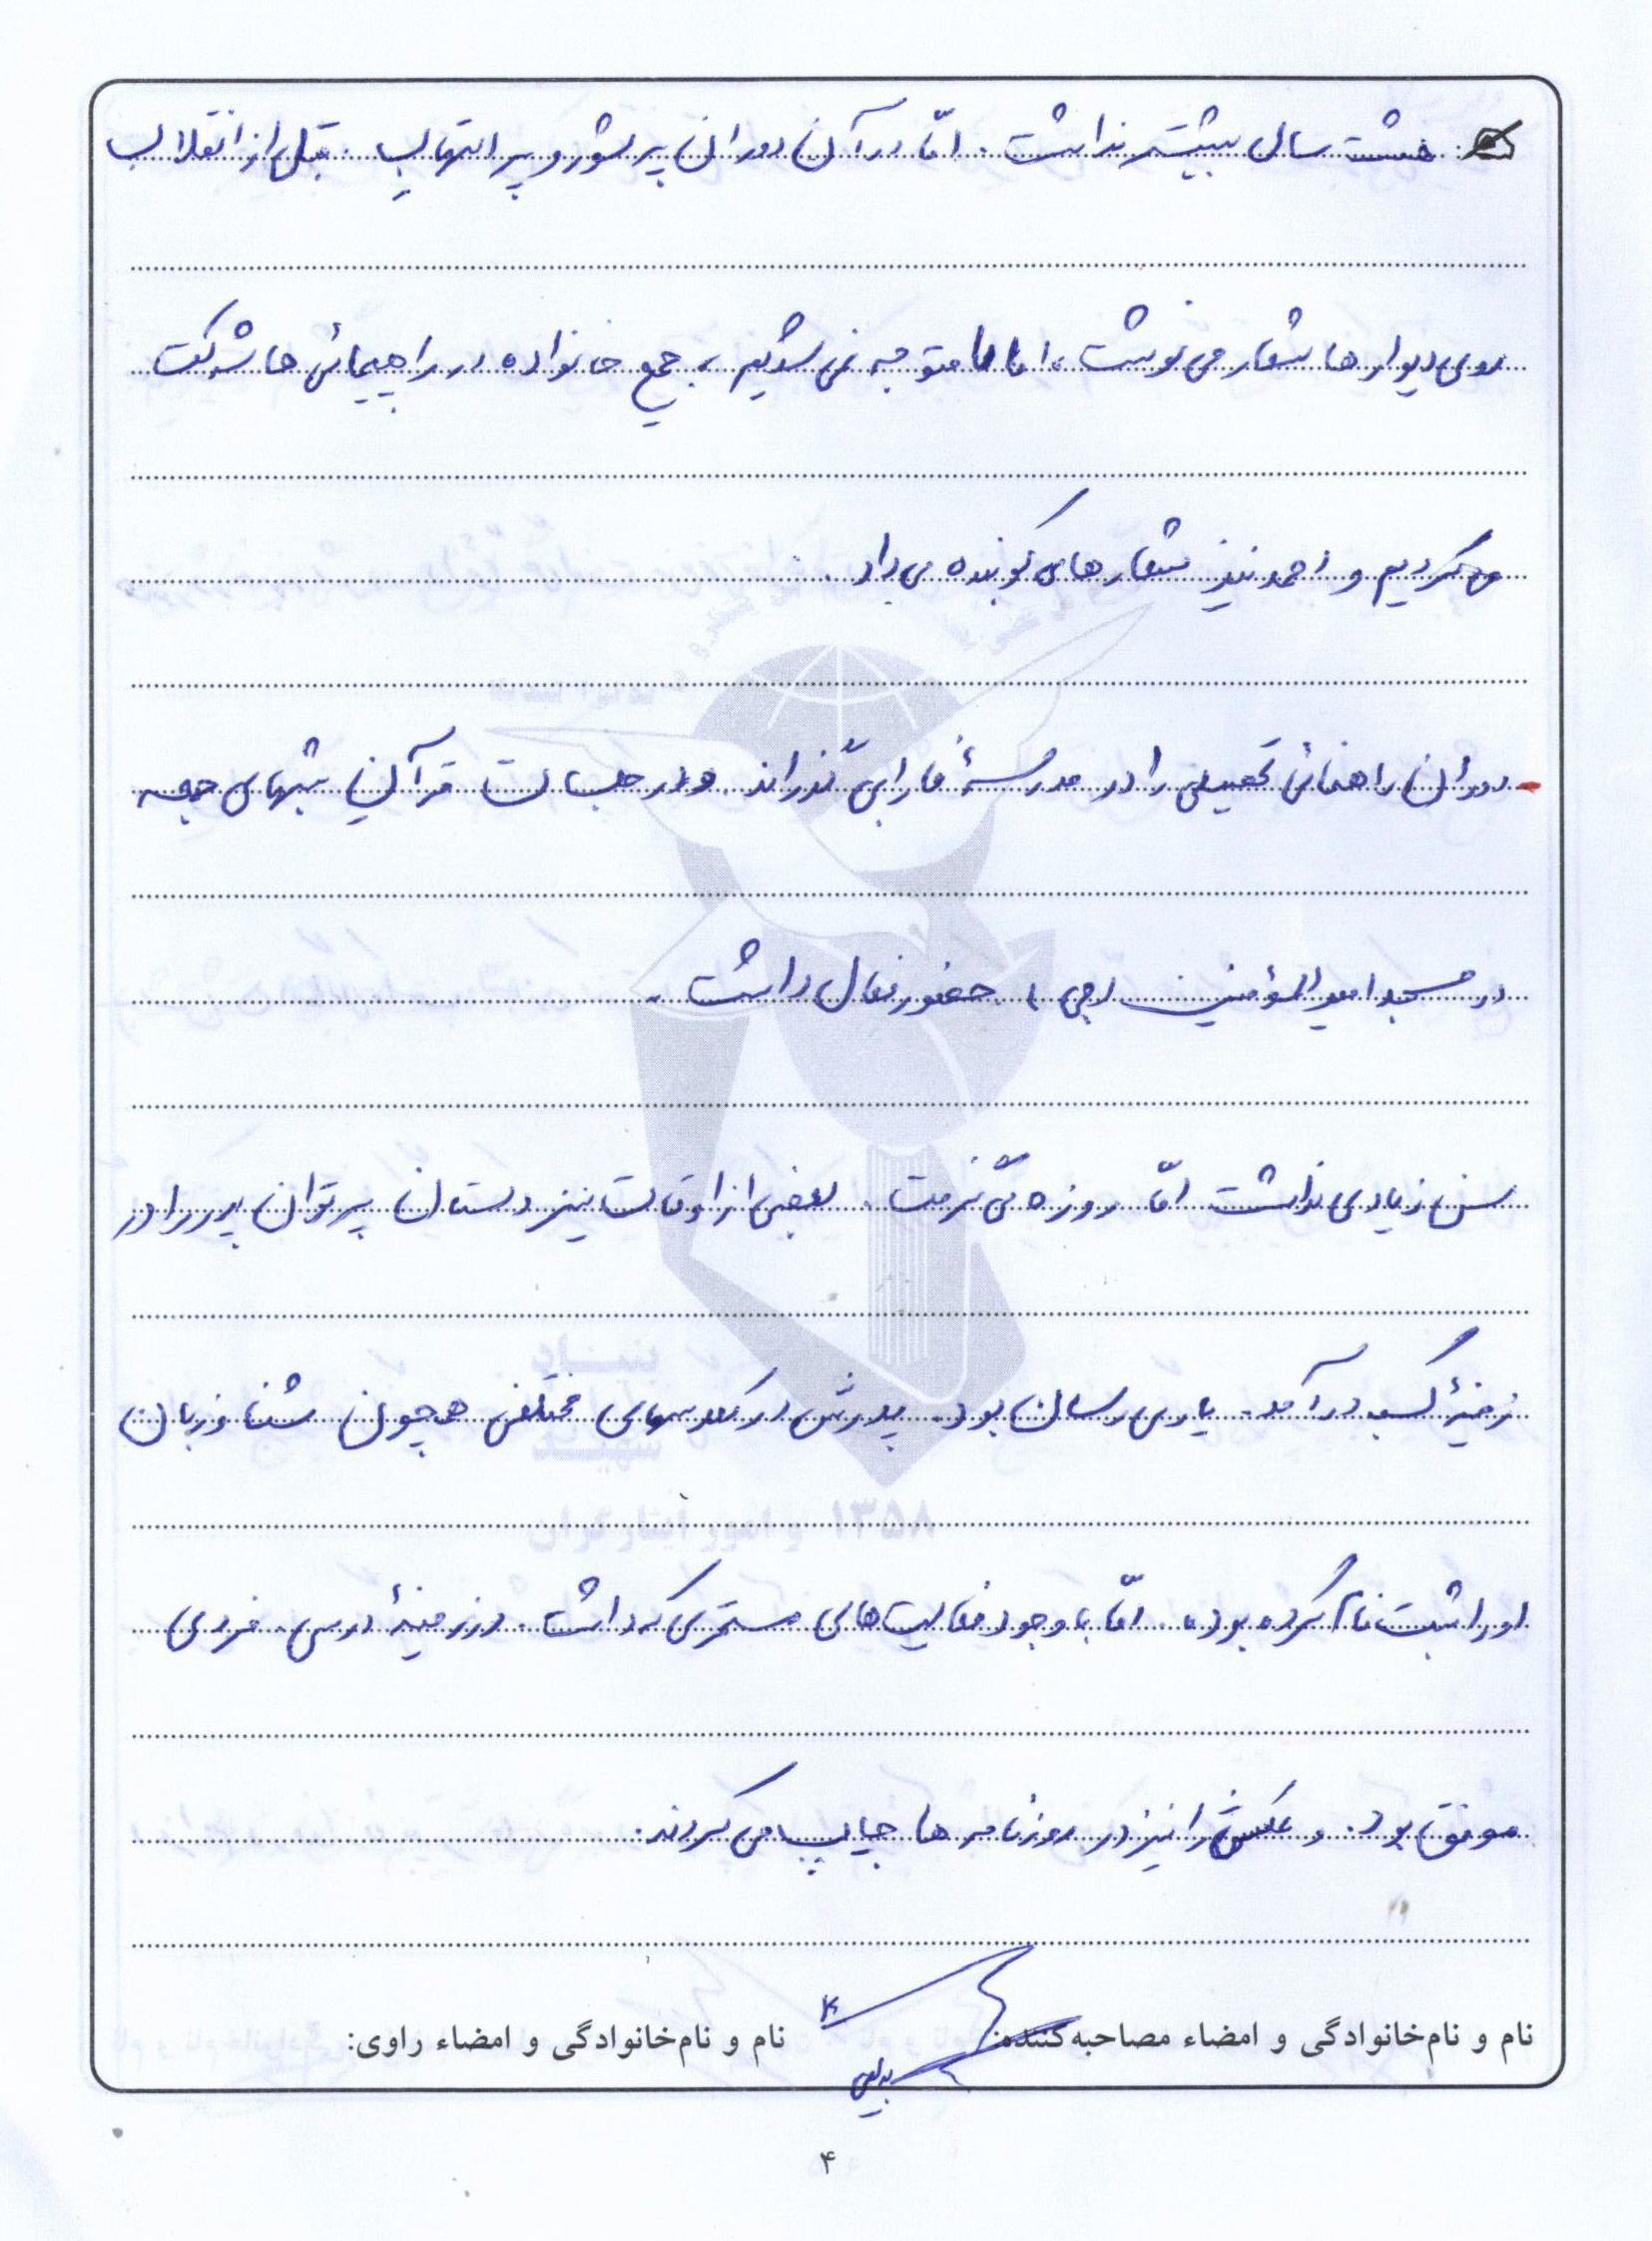 هشت سال بیشتر نداشت. امّا در آن دوران پر شور و پر التهاب. قبل از انقلاب
روی دیوارها شعار می نوشت، اما ما متوجه نمی شدیم، جمع خانواده در راهپیمائی ها شرکت
می کردیم و احمد نیز شعارهای کوبنده می داد.
- دوران راهنمائی تحصیلی را در مدرسهٔ فارابی گذراند. و در جلسات قرآن شبهای جمعه
در مسجد امیرالمؤمنین (ع)، حضور فعال داشت.
سن زیادی نداشت امّا روزه می گرفت. بعضی از اوقات نیز دستان پر توان پدر را در
زمینهٔ کسب درآمد. یاری رسان بود. پدرش در کلاسهای مختلفی همچون شنا و زبان
او را ثبت نام کرده بود. امّا با وجود فعالیت های مستمری که داشت. در زمینهٔ درسی، فردی
موفق بود. و عکسش را نیز در روزنامه ها چاپ می کردند.
نام و نام‌خانوادگی و امضاء مصاحبه‌کننده: نام و نام‌خانوادگی و امضاء راوی:
۴
بنیاد
شهید
و امور ایثارگران ۱۳۵۸